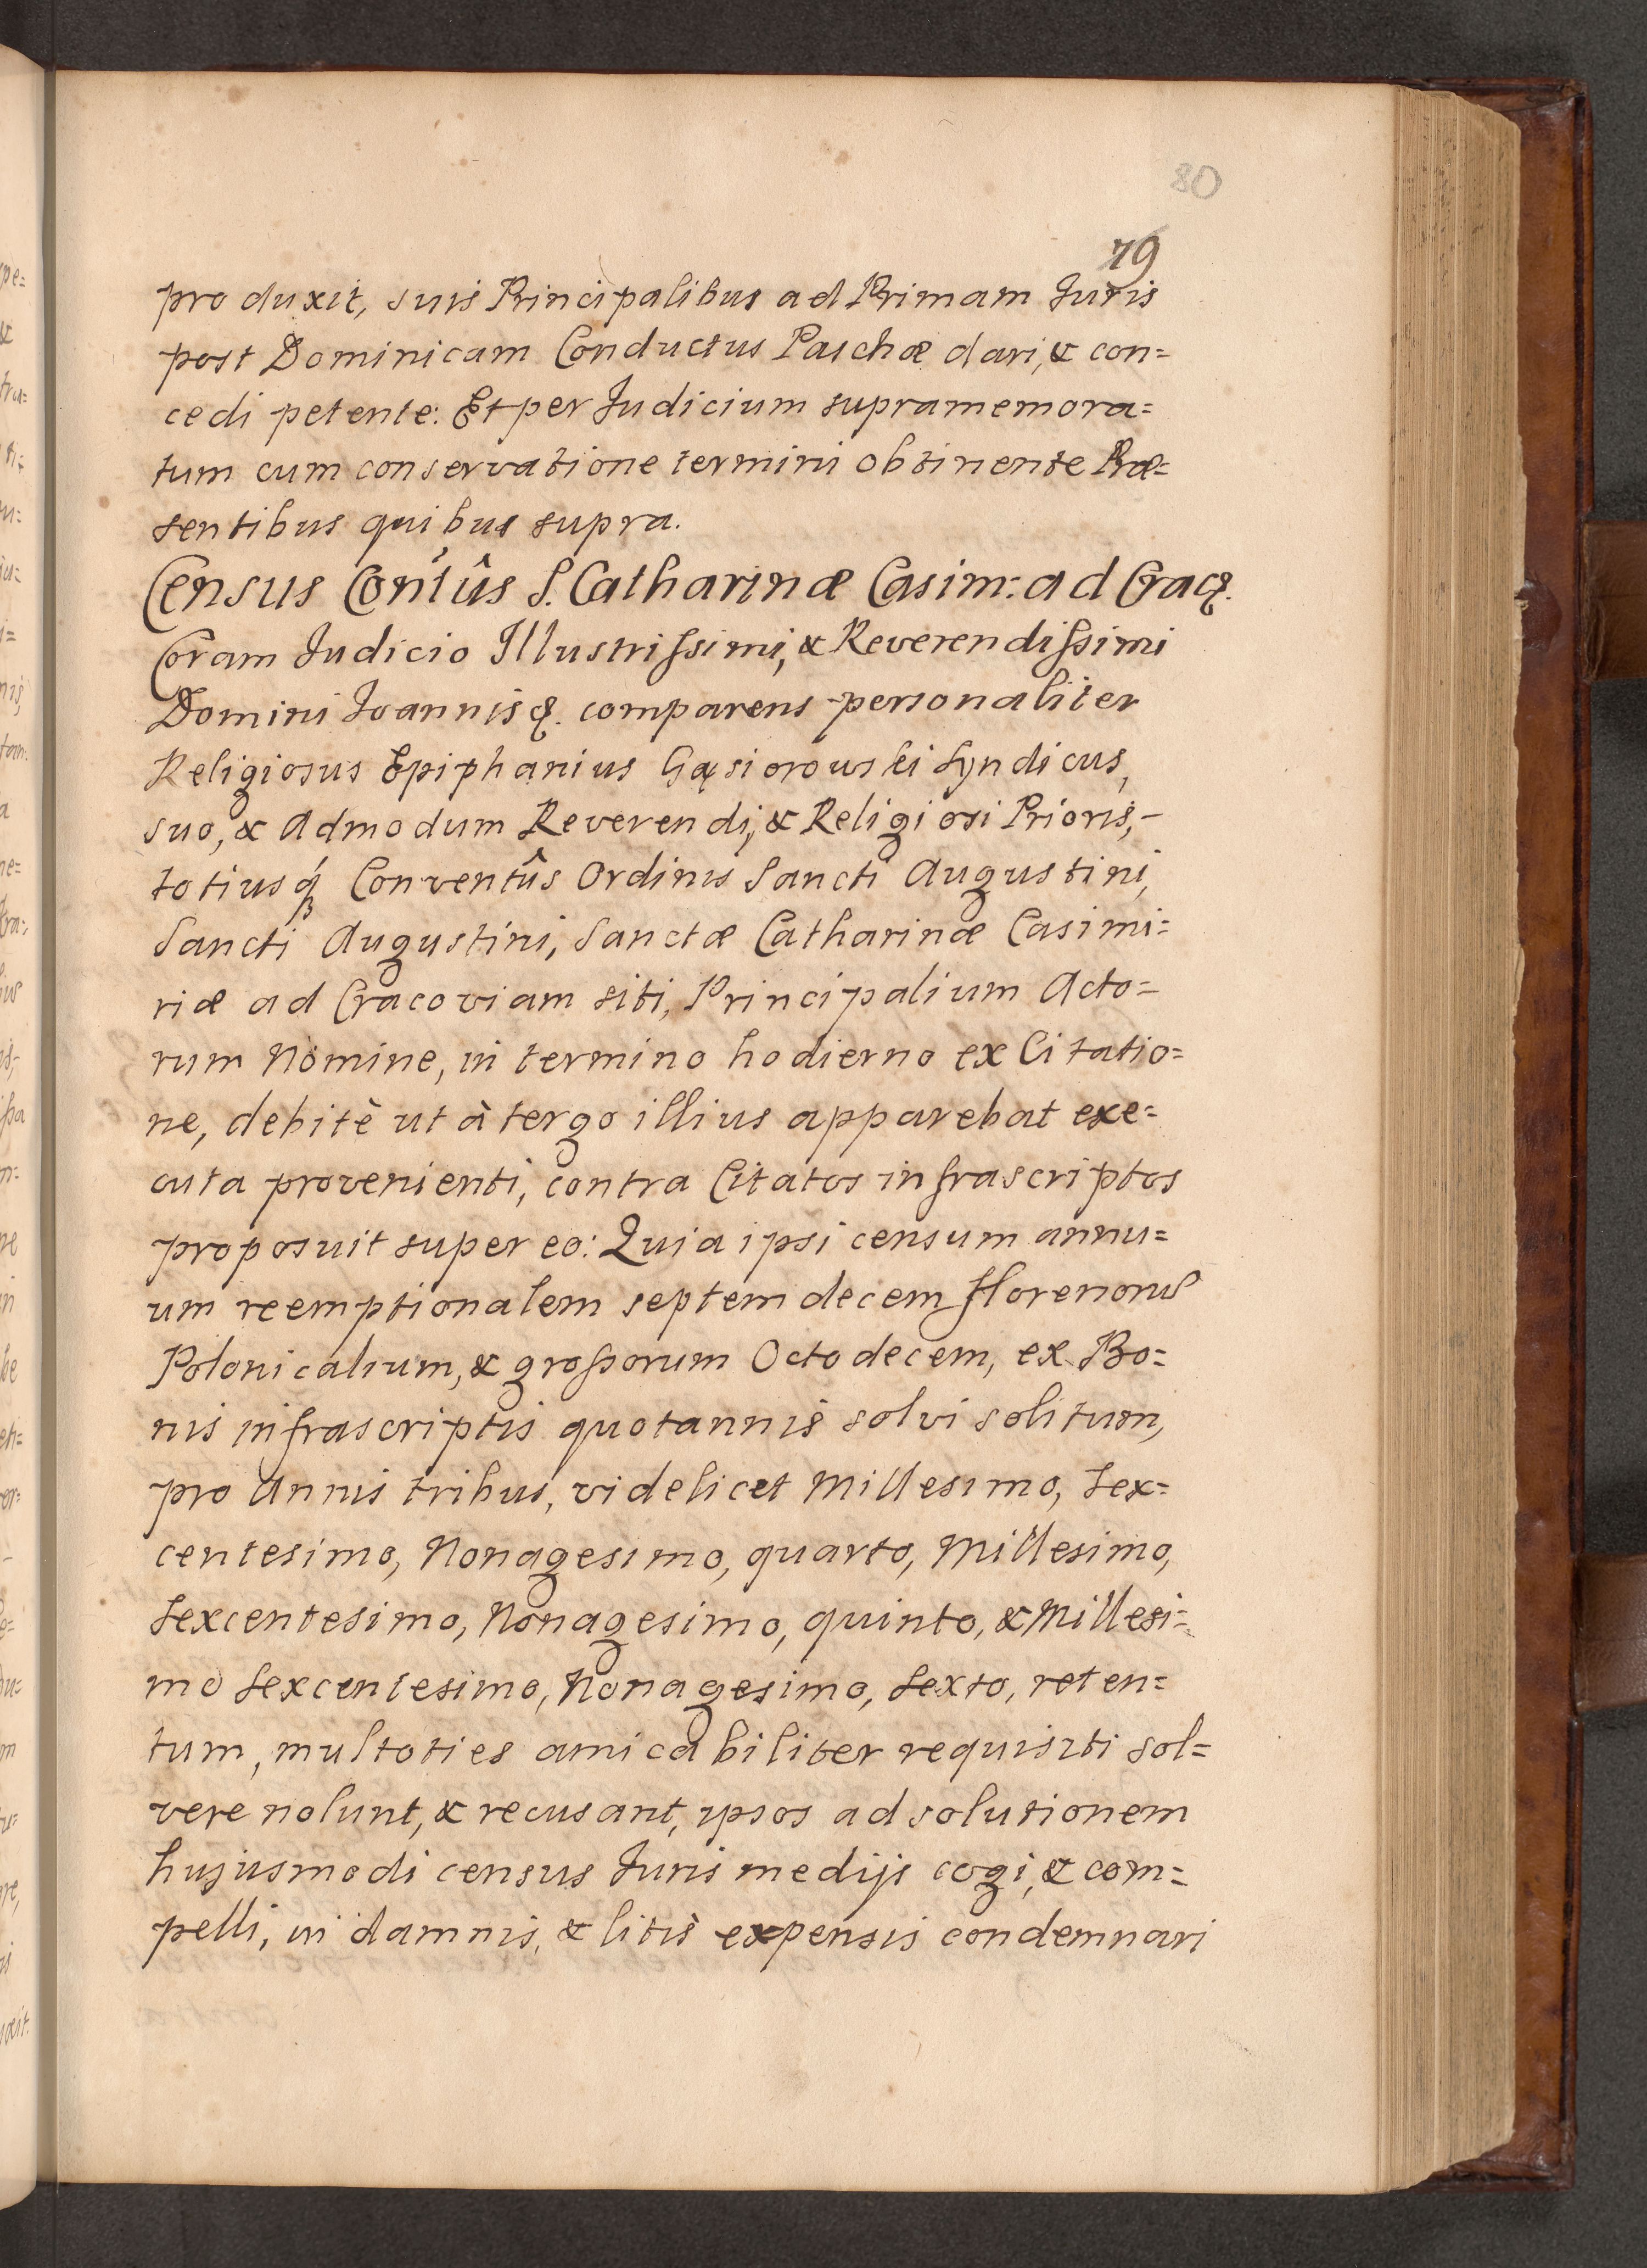 80
79
produxit, suis Principalibus ad Primam Juris
post Dominicam Conductus Paschæ dari, & con=
cedi petente: Et per Judicium supramemora=
tum cum conservatione termini obtinente Præ=
sentibus quibus supra.
Census Con̄tûs S. Catharinæ Casim: ad Crac.
Coram Judicio Illustrissimi, & Reverendissimi
Domini Joannis &. comparens personaliter
Religiosus Epiphanius Gąsiorowski Syndicus,
suo, & Admodum Reverendi, & Religiosi Prioris,-
totiusq́; Conventûs Ordinis Sancti Augustini,
Sancti Augustini, Sanctæ Catharinæ Casimi=
riæ ad Cracoviam siti, Principalium Acto=
rum Nomine, in termino hodierno ex Citatio=
ne, debitè ut à tergo illius apparebat exe=
cuta provenienti, contra Citatos infrascriptos
proposuit super eo: Quia ipsi censum annu=
um reemptionalem septemdecem Florenorum
Polonicalium, & grossorum Octodecem, ex Bo=
nis infrascriptis quotannis solvi solitum,
pro Annis tribus, videlicet Millesimo, Sex=
centesimo, Nonagesimo, quarto, Millesimo,
Sexcentesimo, Nonagesimo, quinto, & Millesi=
mo Sexcentesimo, Nonagesimo, Sexto, reten=
tum, multoties amicabiliter requisiti sol=
vere nolunt, & recusant, ipsos ad solutionem
hujusmodi census Juris medijs cogi, & com=
pelli, in damnis, & litis expensis condemnari